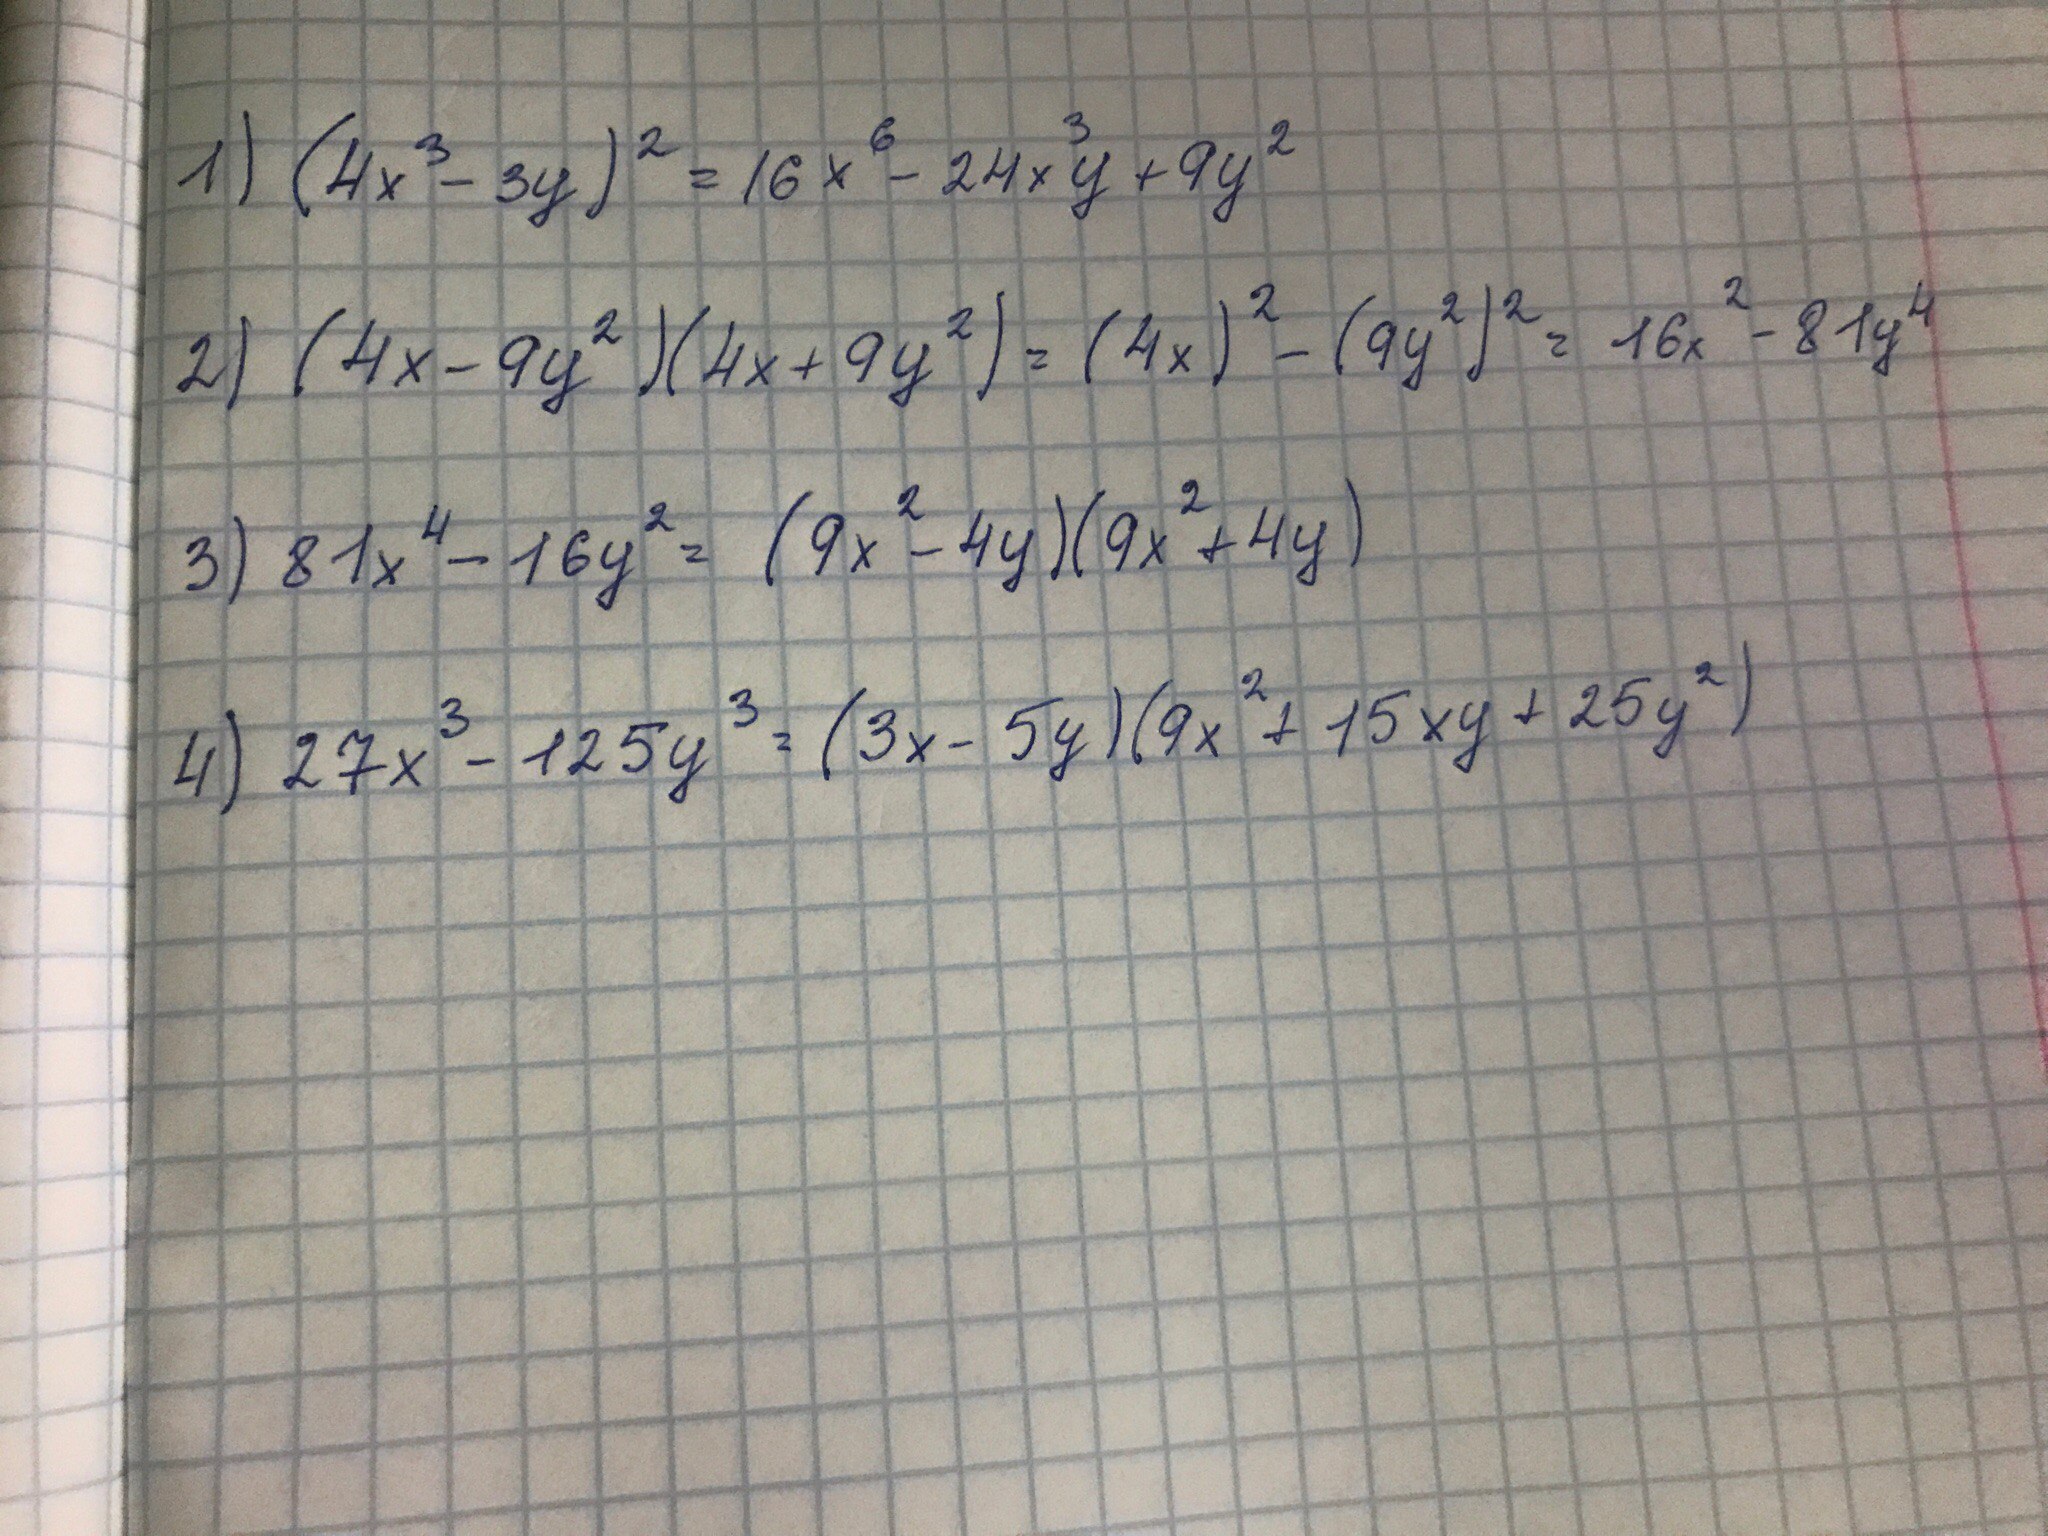 1) (4x³ - 3y)² = 16x⁶ - 24x³y + 9y²
2) (4x - 9y²)(4x + 9y²) = (4x)² - (9y²)² = 16x² - 81y⁴
3) 81x⁴ - 16y² = (9x² - 4y)(9x² + 4y)
4) 27x³ - 125y³ = (3x - 5y)(9x² + 15xy + 25y²)